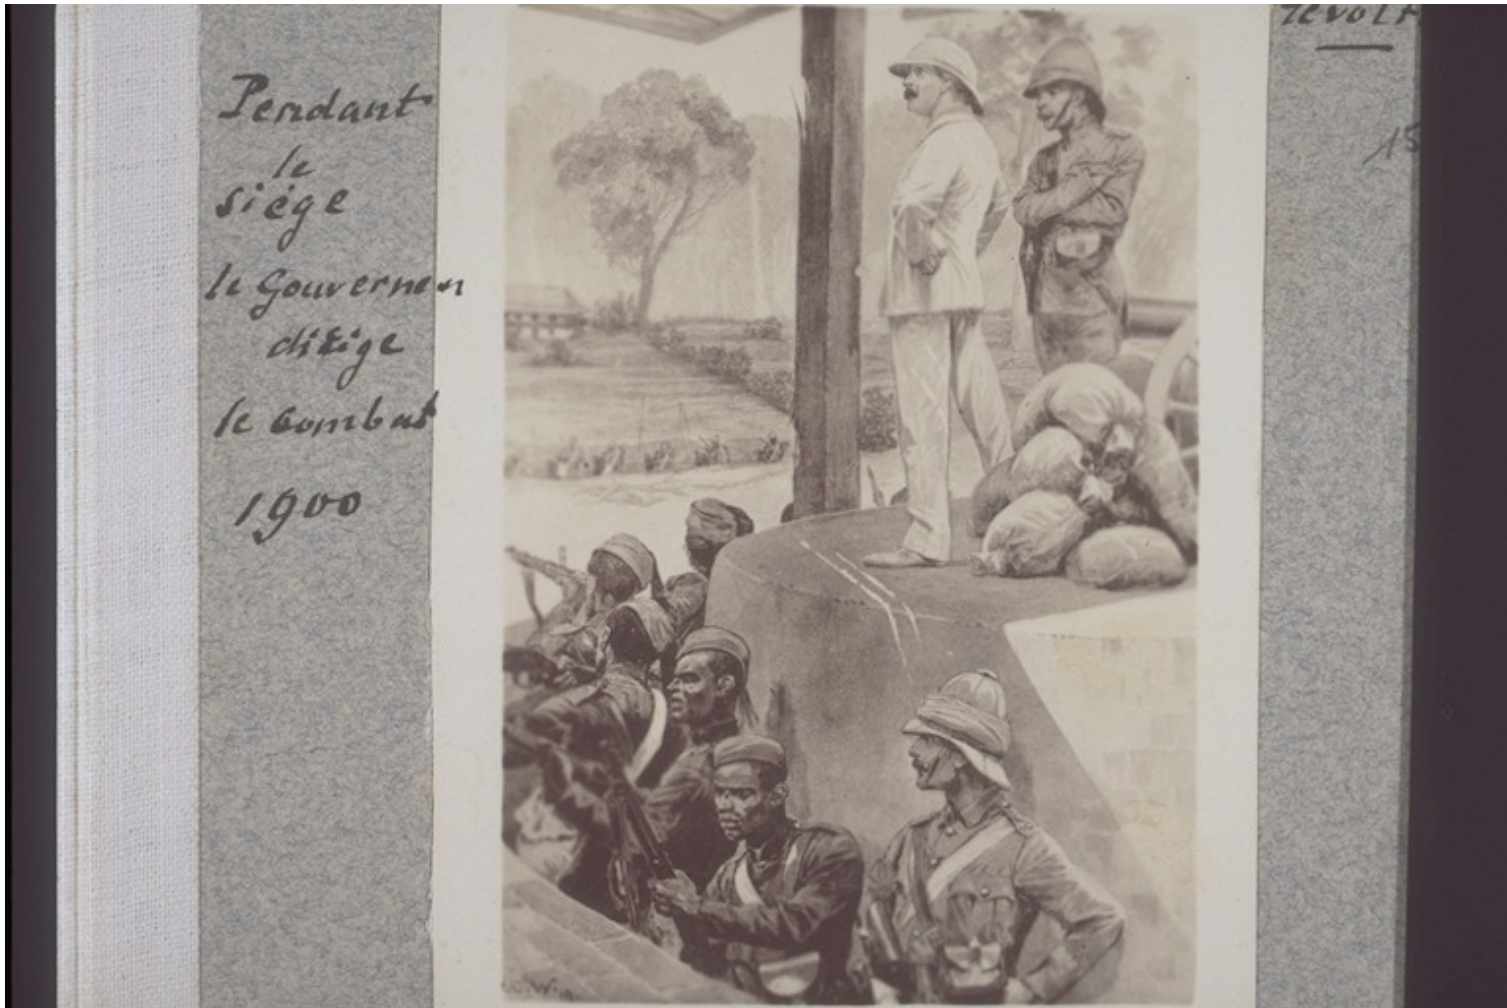 Pendant
le
siége
le Gouverneur
dirige
le combat
1900
révolt
15